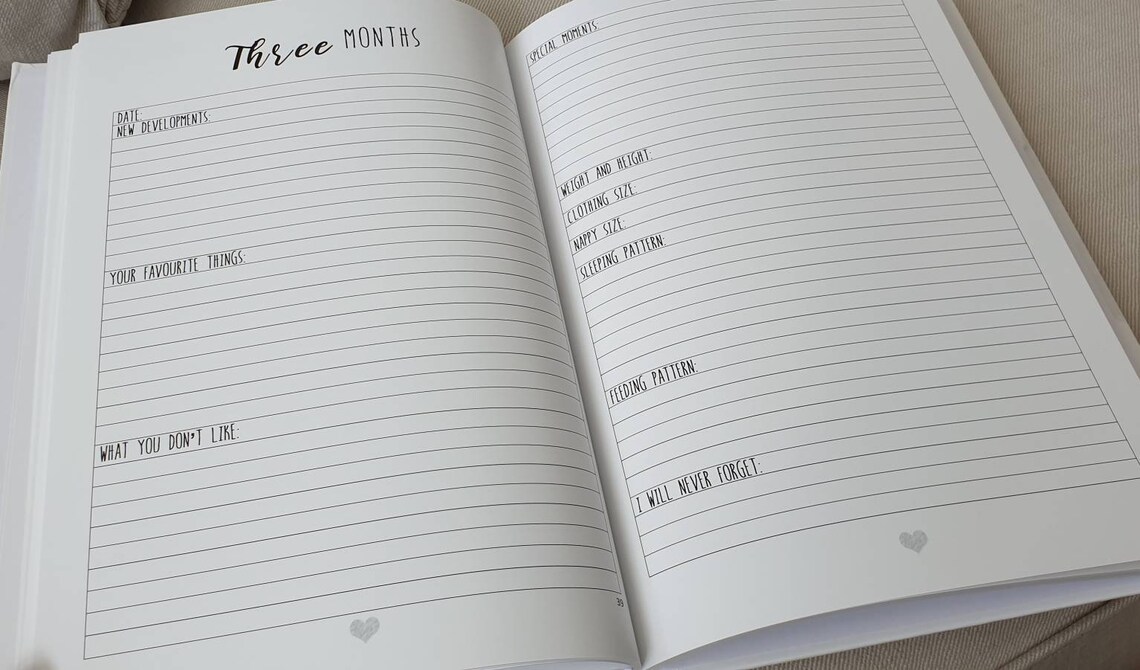 Three MONTHS
DATE:
NEW DEVELOPMENTS:
YOUR FAVOURITE THINGS:
WHAT YOU DON'T LIKE:
39
SPECIAL MOMENTS:
WEIGHT AND HEIGHT:
CLOTHING SIZE:
NAPPY SIZE:
SLEEPING PATTERN:
FEEDING PATTERN:
I WILL NEVER FORGET: